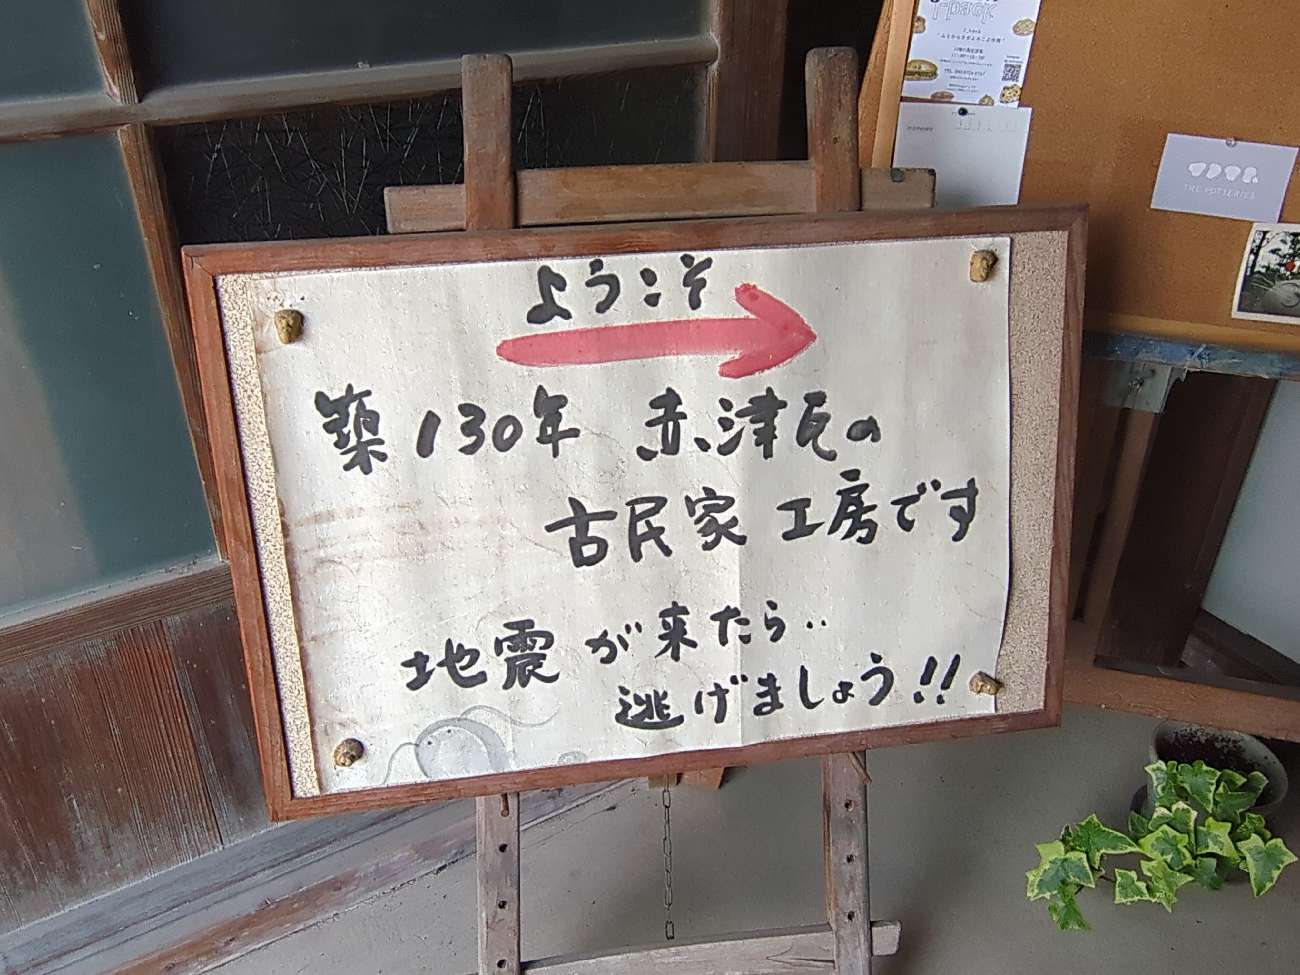 ようこそ
築130年 赤津瓦の
古民家 工房です
地震が来たら‥
逃げましょう!!
THE POTTERIES